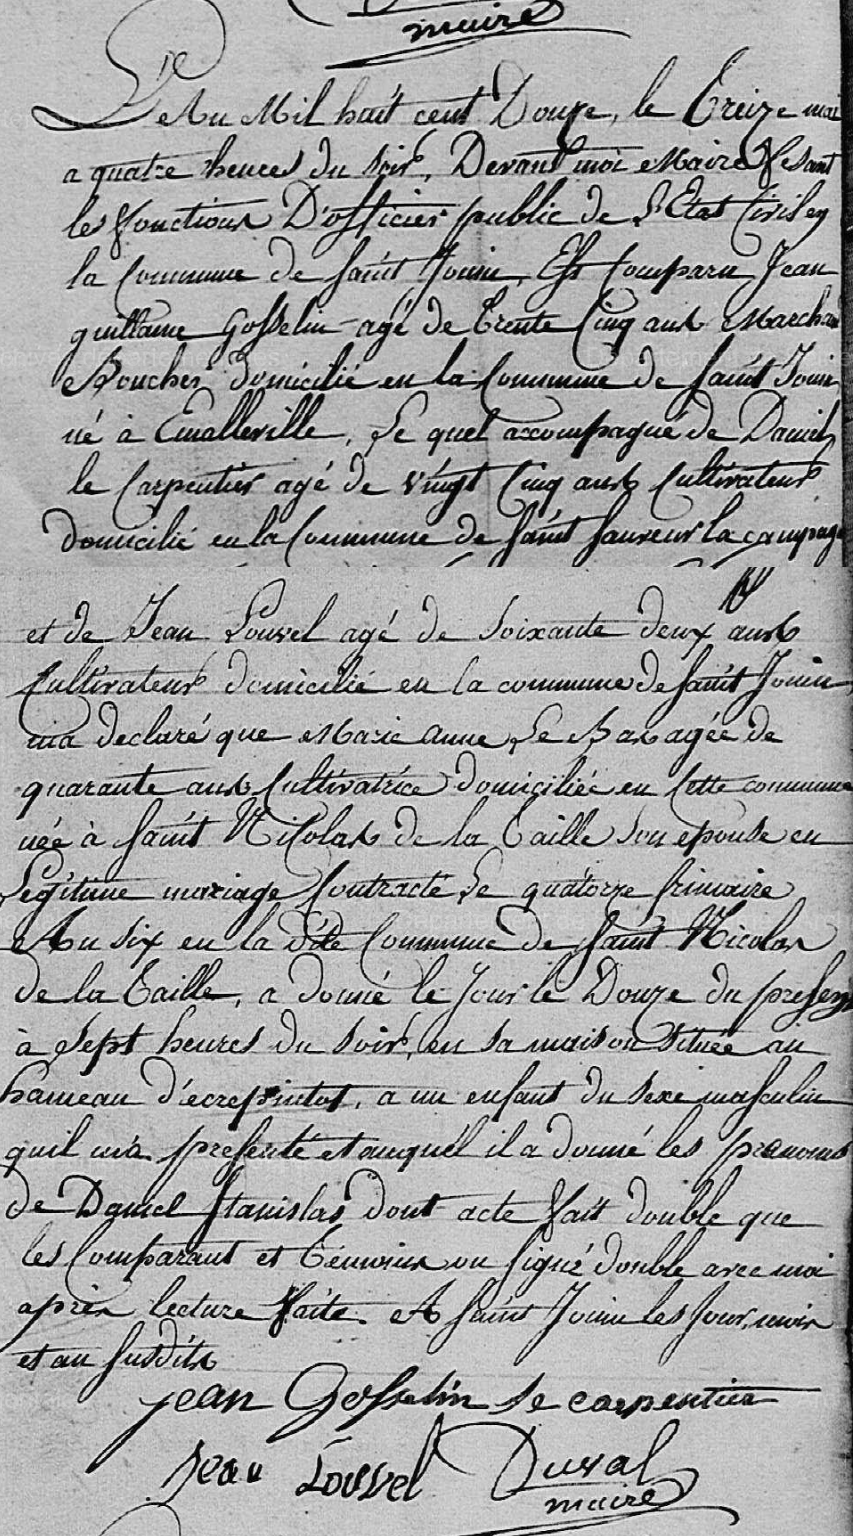 maire
L'An Mil huit cent Douze, le Treize mai
a quatre heures du soir, Devant moi Maire fesant
les fonctions D'officier public de L'Etat Civil en
la Commune de Saint Jouin, Est Comparu Jean
guillaume Gosselin agé de Trente Cinq ans Marchan
Boucher domicilié en la Commune de Saint Jouin
né à Emalleville, Le quel accompagné de Daniel
le Carpentier agé de vingt Cinq ans Cultivateur
domicilié en la Commune de Saint Sauveur la campagne
et de Jean Louvel agé de soixante deux ans
Cultivateur domicilié en la commune de Saint Jouin
ma declaré que Marie anne Le Bas agée de
quarante ans Cultivatrice domiciliée en Cette commune
née à Saint Nicolas de la Taille son epouse en
Legitime mariage Contracté Le quatorze frimaire
An six en la dite Commune de Saint Nicolas
de la Taille, a donné le Jour le Douze du present
à Sept heures du soir, en sa maison située au
hameau d'écrepintot, a un enfant du sexe masculin
quil m'a presenté et auquel il a donné les prenoms
de Daniel Stanislas Dont acte fait double que
les Comparant et Témoins on signé double avec moi
après lecture faite. A Saint Jouin les Jour, mois
et an susdits
jean Gosselin le carpentier
Jean Louvel Duval
maire